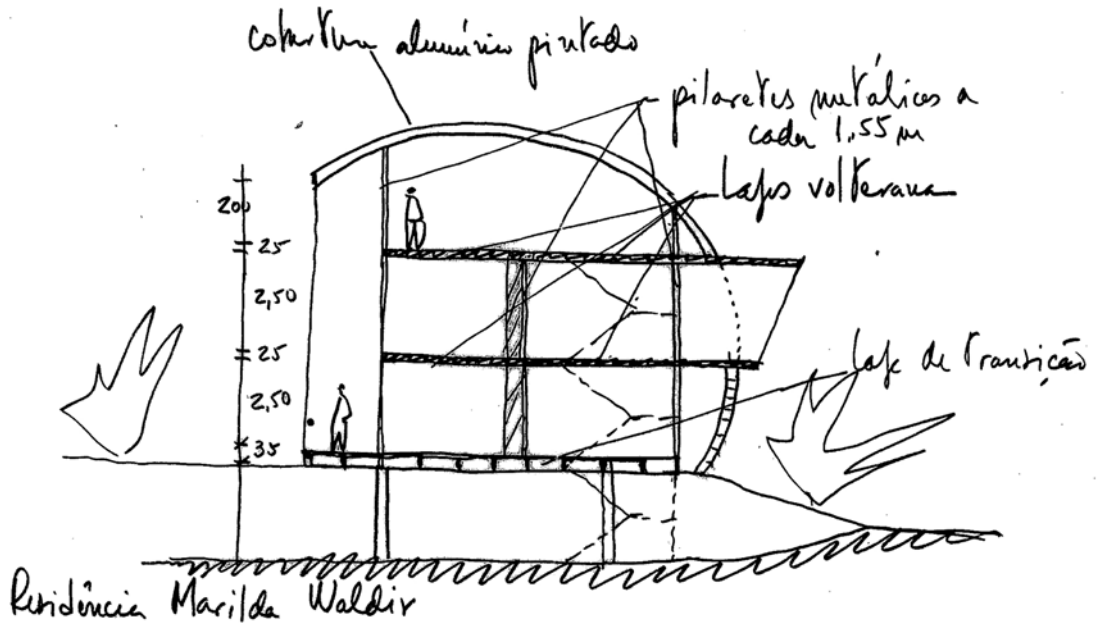 cobertura alumínio pintado
pilaretes metálicos a
cada 1,55 m
Lajes volterana
200
25
2,50
25
laje de transição
2,50
35
Residência Marilda Waldir